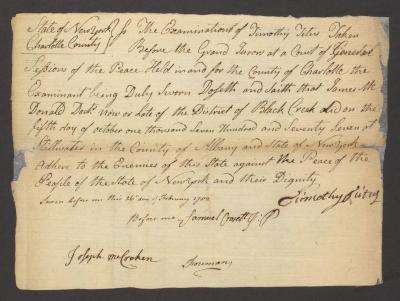 State of New York } Ss The Examination of Timothy Titus Taken
Charlotte County } Before the Grand Juror at a Court of General
Sessions of the Peace Held in and for the County of Charlotte the
Examinant being Duly Sworn Deposeth and saith that James Mc
Donald Doctr now or Late of the District of Black Creek did on the
fifth day of october one thousand Seven Hundred and Seventy Seven at
Stillwater in the County of Albany and State of New York
Adhere to the Enemies of this State against the Peace of the
People of the State of New York and their Dignity
Timothy Titus
Sworn before me this 26 day of February 1780
Before me Samuel Crosett J: P
Joseph McCrcken Foreman